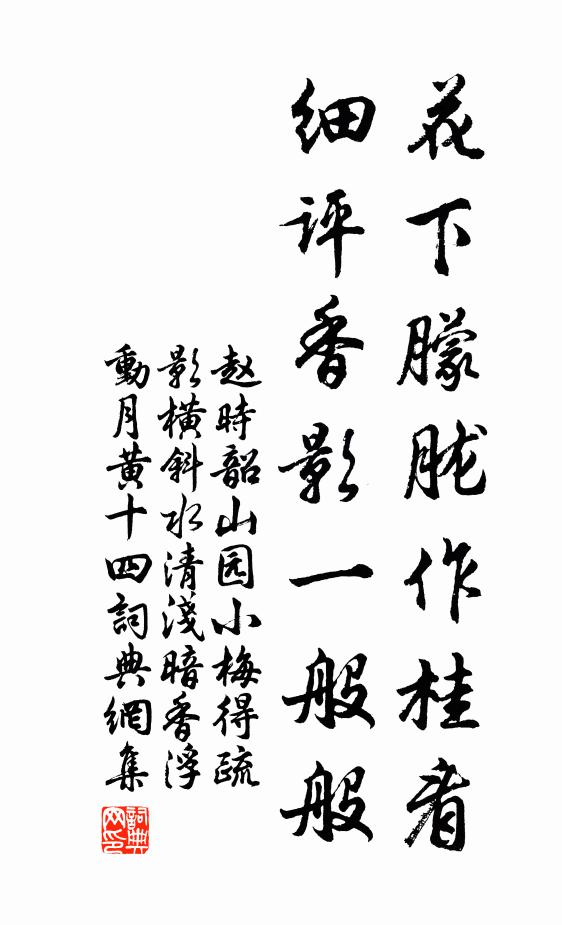 花下朦胧作桂看
细评香影一般般
赵時韶山园小梅得疏
影横斜水清淺暗香浮
動月黄十四詞典網集
詞典网印